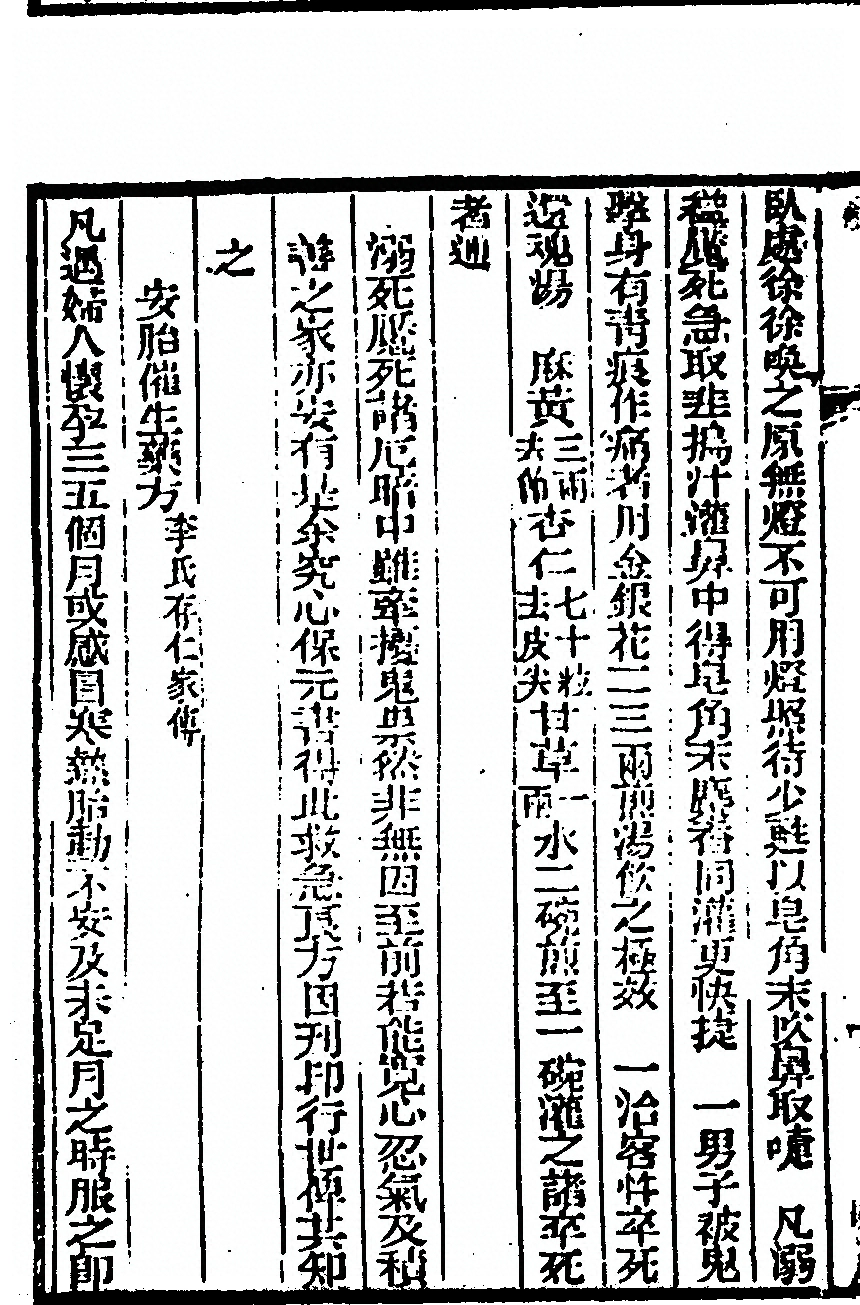 臥處徐徐喚之原無燈不可用燈照待少甦以皂角末吹鼻取嚏　凡溺
縊魘死急取韭搗汁灌鼻中得皂角末麝香同灌更快捷　一男子被鬼
擊身有靑痕作痛者用金銀花二三兩煎湯飲之極效　一治客忤卒死
還魂湯　麻黃三兩去節杏仁七十粒去皮尖甘草一兩水二碗煎至一碗灌之諸卒死
者通
溺死魘死諸厄暗中雖牽擾鬼祟然非無因至前若能寬心忍氣及積
善之家亦安有是余究心保元書得此救急良方因刋印行世傳共知
之
安胎催生藥方李氏存仁家傳
凡遇婦人懷孕三五個月或感冒寒熱胎動不安及未足月之時服之卽